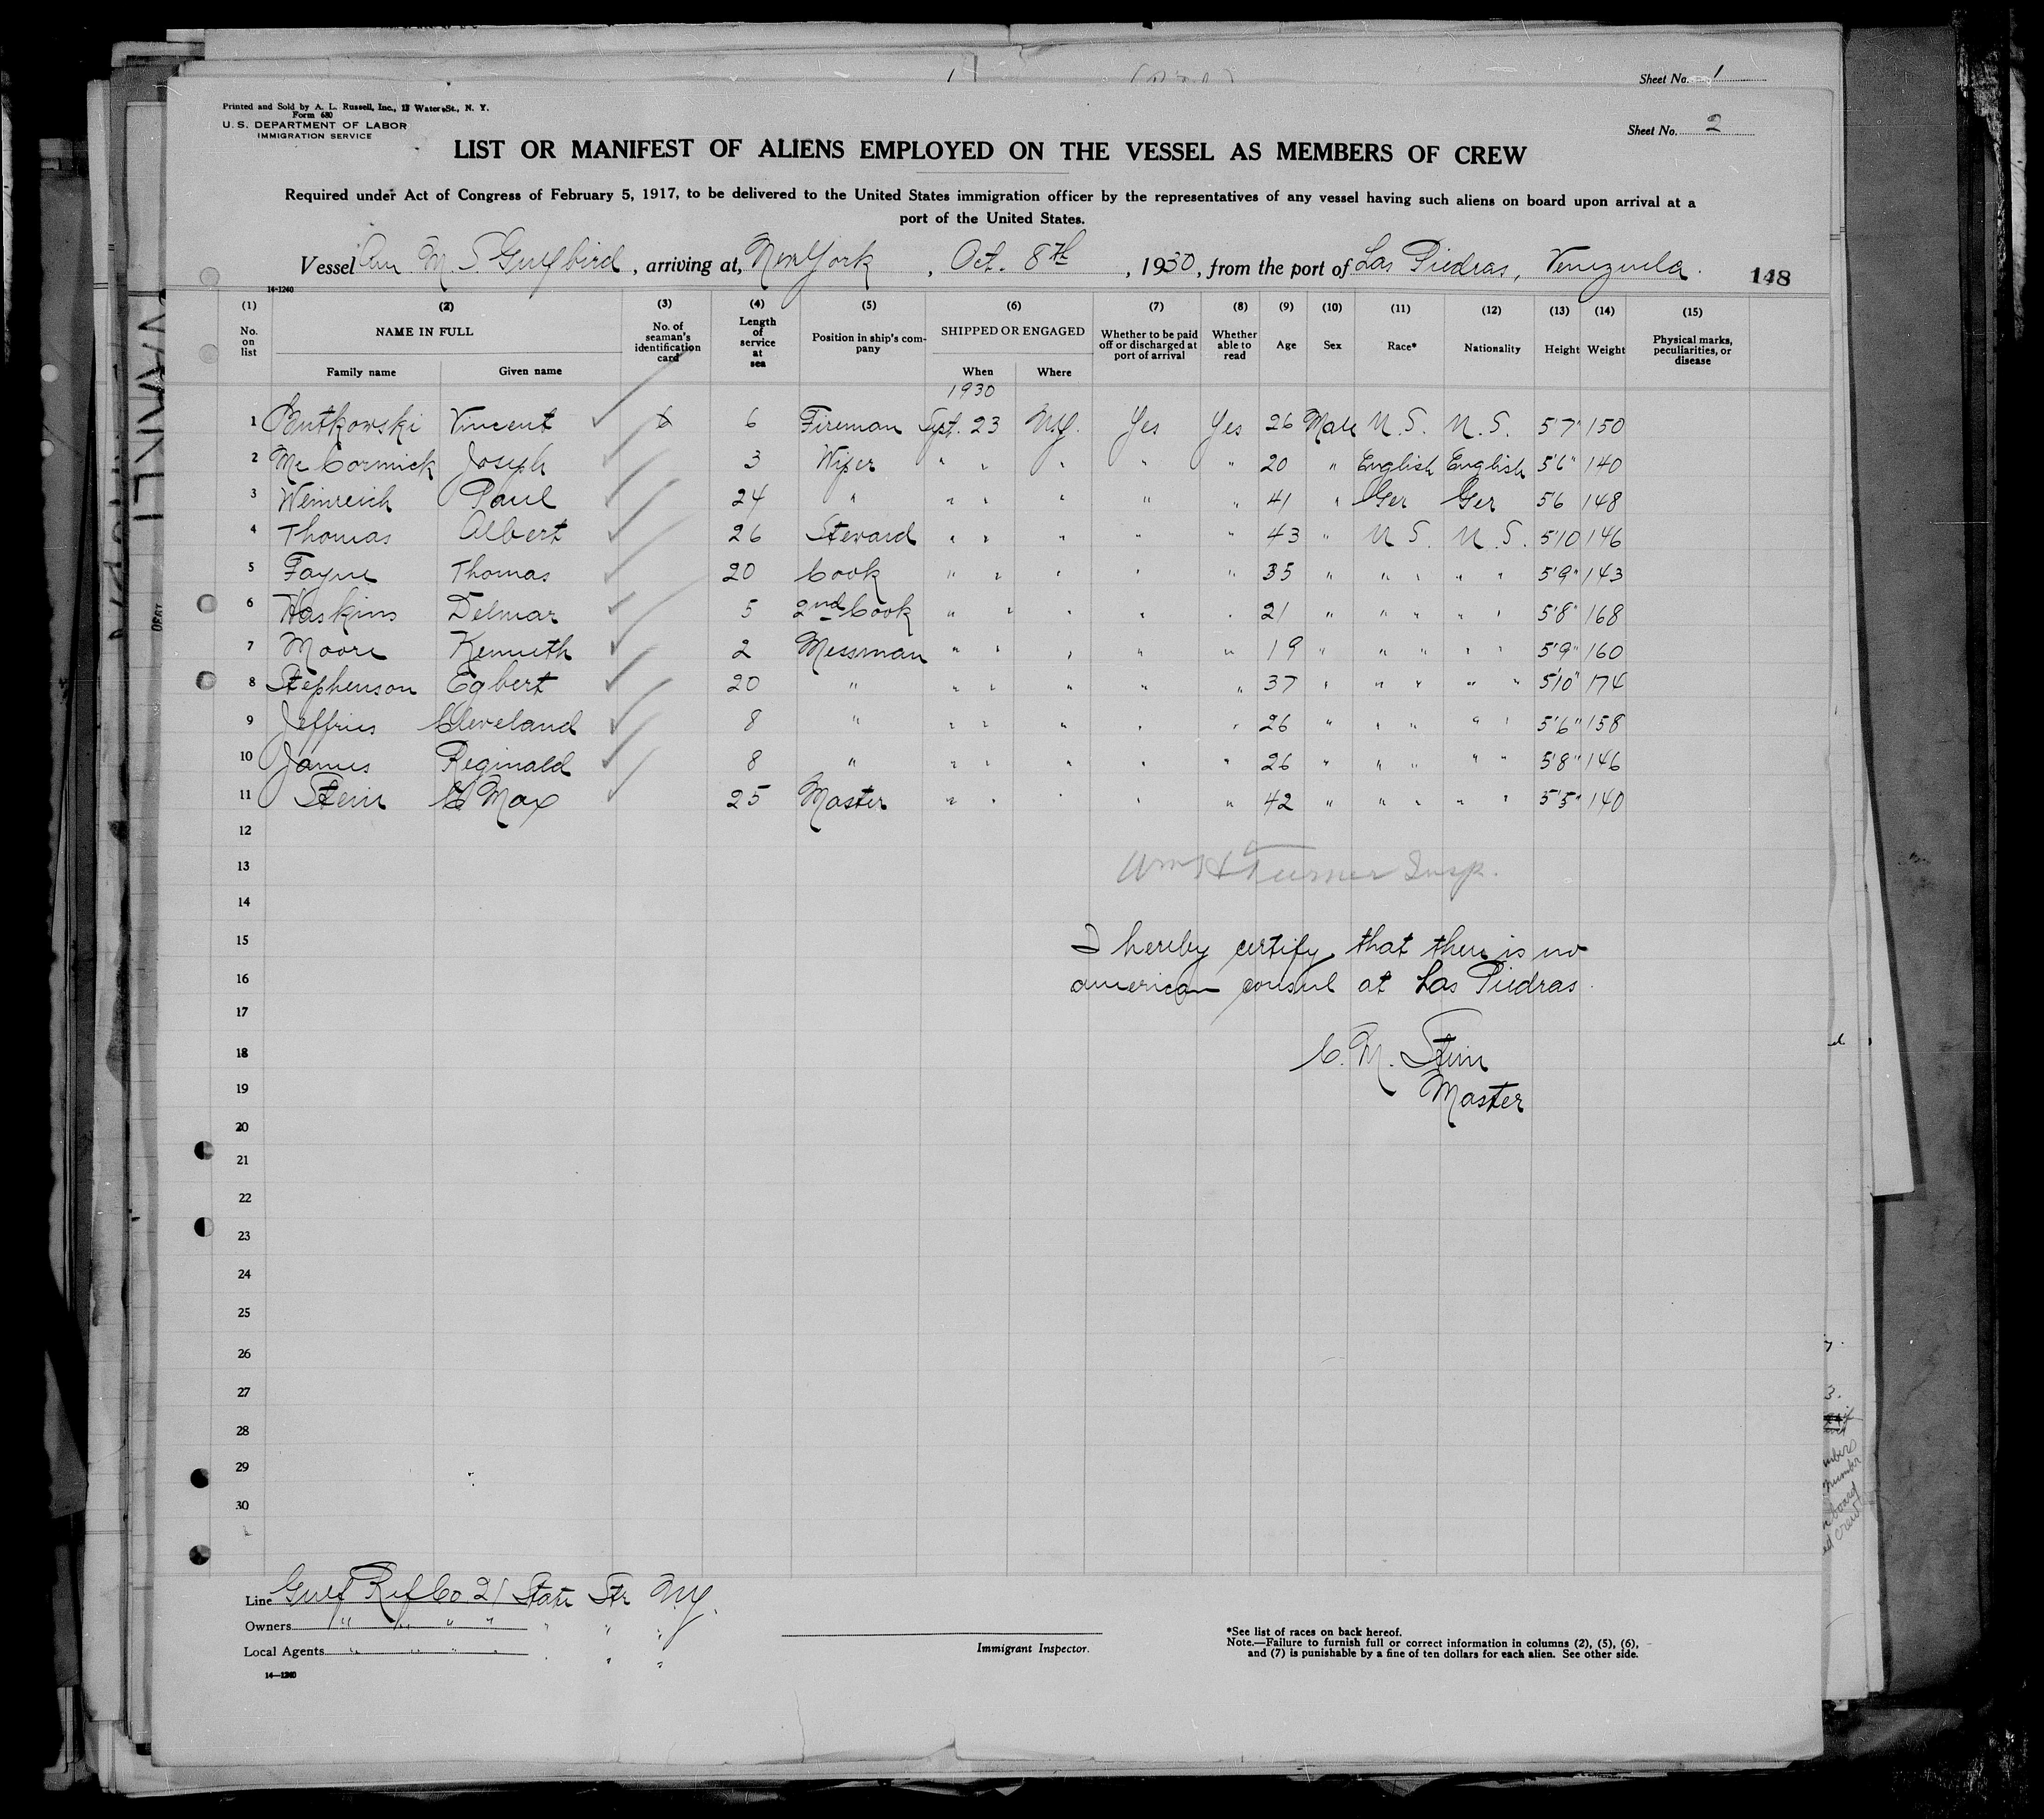 Sheet No. 1
Printed and Sold by A. L. Russell, Inc., 13 Water St., N. Y.
Form 680
U. S. DEPARTMENT OF LABOR
IMMIGRATION SERVICE
Sheet No. 2
LIST OR MANIFEST OF ALIENS EMPLOYED ON THE VESSEL AS MEMBERS OF CREW
Required under Act of Congress of February 5, 1917, to be delivered to the United States immigration officer by the representatives of any vessel having such aliens on board upon arrival at a
port of the United States.
Vessel Am M. S. Gulfbird, arriving at, New York, Oct. 8th, 1930, from the port of Las Piedras, Venezuela.
148
14-1240
(1) (2) (3) (4) (5) (6) (7) (8) (9) (10) (11) (12) (13) (14) (15)
No. on list NAME IN FULL No. of seaman's identification card Length of service at sea Position in ship's company SHIPPED OR ENGAGED Whether to be paid off or discharged at port of arrival Whether able to read Age Sex Race* Nationality Height Weight Physical marks, peculiarities, or disease
Family name Given name When Where
1930
1 Butkowski Vincent 6 Fireman Sept. 23 N.Y. Yes Yes 26 Male U. S. U. S. 5'7" 150
2 Mc Cormick Joseph 3 Wiper " " " " " 20 " English English 5'6" 140
3 Weinreich Paul 24 " " " " " " 41 " Ger Ger 5'6 148
4 Thomas Albert 26 Steward " " " " " 43 " U S. U. S. 5'10 146
5 Fayne Thomas 20 Cook " " " " " 35 " " " " " 5'9" 143
6 Haskins Delmar 5 2nd Cook " " " " " 21 " " " " " 5'8" 168
7 Moore Kenneth 2 Messman " " " " " 19 " " " " " 5'9" 160
8 Stephenson Egbert 20 " " " " " " 37 " " " " " 5'10" 174
9 Jeffries Cleveland 8 " " " " " " 26 " " " " " 5'6" 158
10 James Reginald 8 " " " " " " 26 " " " " " 5'8" 146
11 Stein C Max 25 Master " " " " " 42 " " " " " 5'5" 140
12
13 Wm H Turner Insp.
14
15 I hereby certify that there is no
16 american consul at Las Piedras.
17
18 C. M. Stein
19 Master
20
21
22
23
24
25
26
27
28
29
30
Line Gulf Ref Co 21 State Str N.Y.
Owners " " " " " " "
Local Agents " " " " " " "
14—1240
Immigrant Inspector.
*See list of races on back hereof.
Note.—Failure to furnish full or correct information in columns (2), (5), (6),
and (7) is punishable by a fine of ten dollars for each alien. See other side.